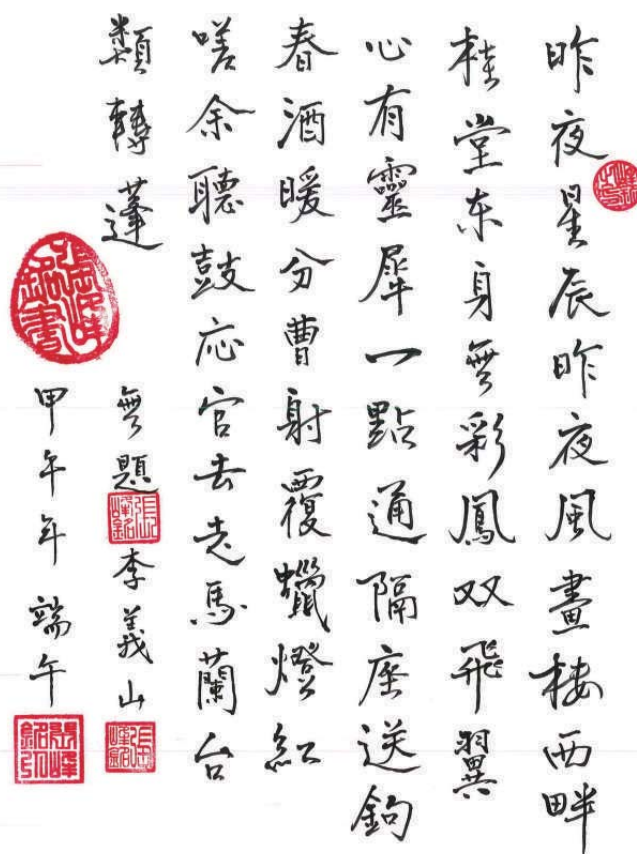 昨夜星辰昨夜風畫楼西畔
桂堂东身無彩鳳双飛翼
心有靈犀一點通隔座送鉤
春酒暖分曹射覆蠟燈紅
嗟余聽鼓応官去走馬蘭台
類轉蓬
無題
李義山
甲午年端午